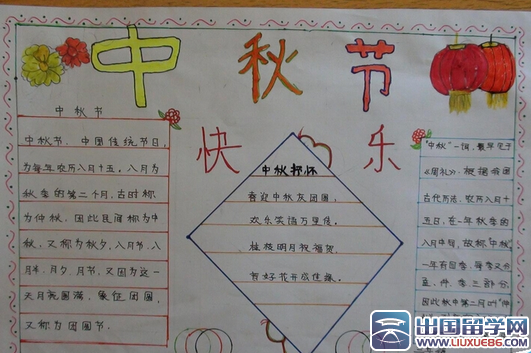 中秋节
快乐
中秋节
中秋节，中国传统节日，
为每年农历八月十五。八月为
秋季的第二个月，古时称
为仲秋，因此民间称为中
秋，又称为秋夕、八月节、八
月半、月夕、月节，又因为这一
天月亮圆满，象征团圆，
又称为团圆节。
中秋抒怀
喜迎中秋庆团圆，
欢乐笑语万里传。
桂枝明月祝福贺，
哲好花开成佳缘。
"中秋"一词，最早见于
《周礼》。根据我国
古代历法，农历八月十
五日，在一年秋季的
八月中旬，故称"中秋"
一年有四季，每季又分
孟、仲、季三部分，
因此秋中第二月叫"仲
出国留学网
www.liuxue86.com